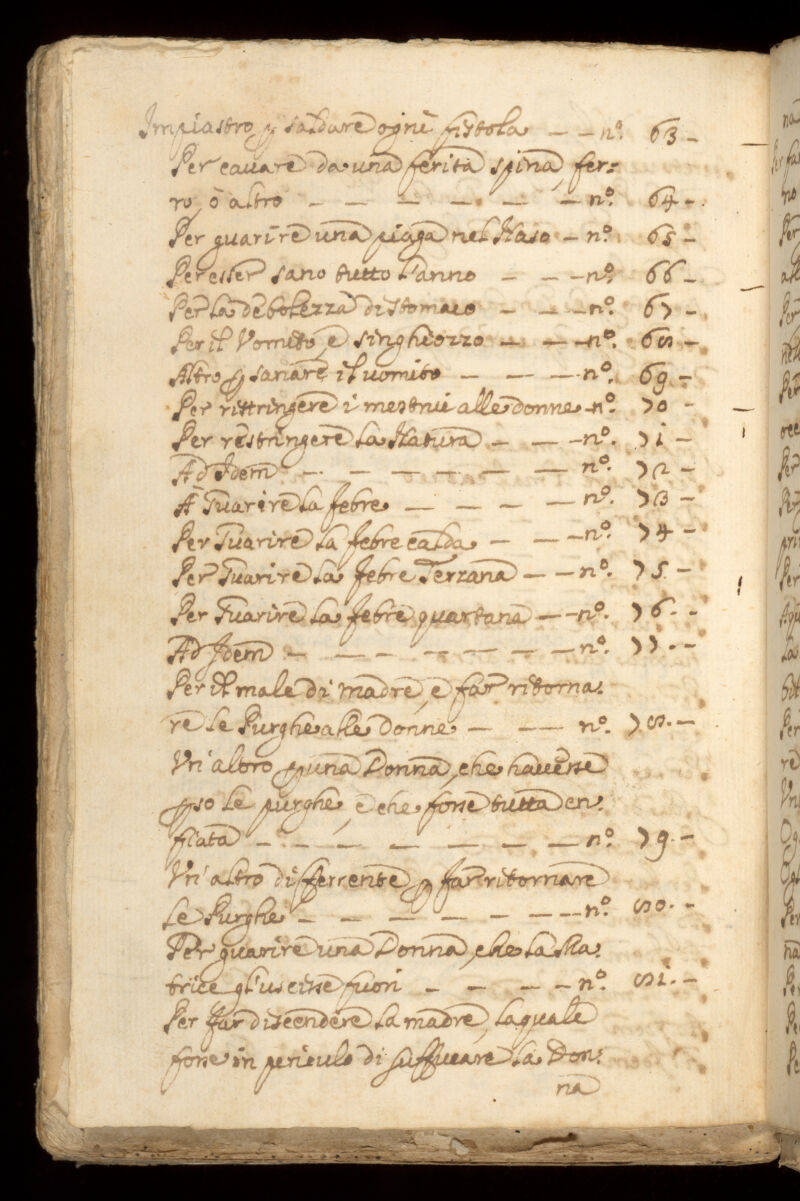 Impiastro ꝑ saldare ogni fistola — — nº. 63 —
Per cavare da una ferita spina, fer:
ro, ò altro — — — — — — nº. 64 —
Per guarire una piaga nel Naso — nº. 65 —
Per esser sano tutto l'anno — — — nº. 66 —
Per la debolezza di stomaco — — — nº. 67 —
Per il Vomito, e singhiozzo — — — nº. 68 —
Altro ꝑ sanare il uomito — — — nº. 69 —
Per ristringere i mestrui alle donne — nº. 70 —
Per restringere la Natura — — — nº. 71 —
Ad Idem — — — — — — nº. 72 —
A Guarire la febre — — — — nº. 73 —
Per Guarire la febre calda — — — nº. 74 —
Per Guarire la febre Terzana — — nº. 75 —
Per Guarire la febre quartana — — nº. 76 —
Ad Idem — — — — — — — nº. 77 —
Per il male di madre, e far ritorna:
re le Purghe alle Donne — — — nº. 78 —
Un'altro ꝑ una Donna, che havesse
ꝑso le purghe, e che fosse tutta en:
fiata — — — — — — — nº. 79 —
Un'altro differrente ꝑ far ritornare
le Purghe — — — — — — — nº. 80 —
Per guarire una Donna, che la Ma:
trice gl'uscisse fuori — — — — nº. 81 —
Per far discendere la madre, la quale
fosse in periculo di suffucare la Don:
na